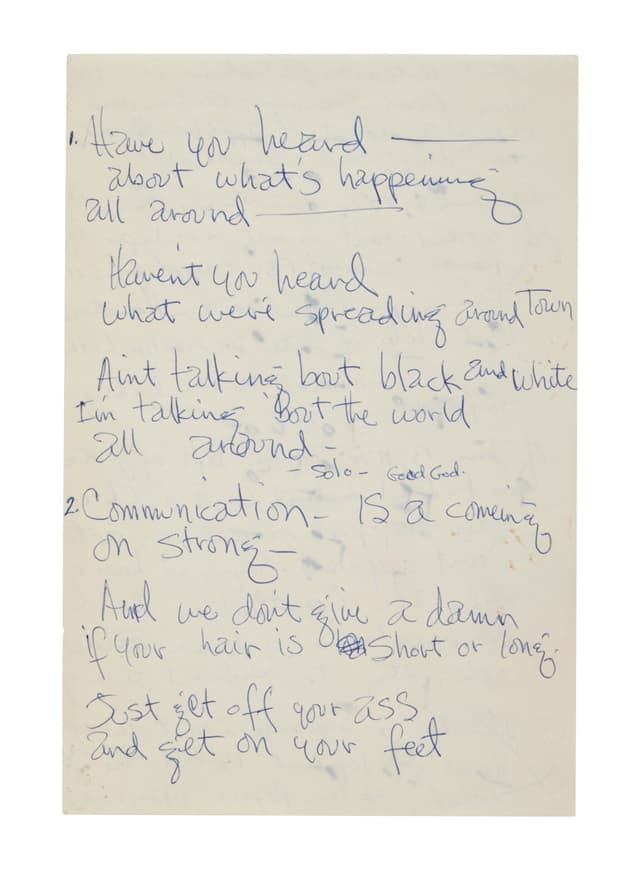 1. Have you heard ———
about what's happening
all around ———
Haven't you heard
what we're spreading around Town
Aint talking bout black and white
I'm talking 'Bout the world
all around –
– Solo – Good God.
2. Communication – IS a comeing
on strong —
And we don't give a damn
if your hair is short or long.
Just get off your ass
and get on your feet